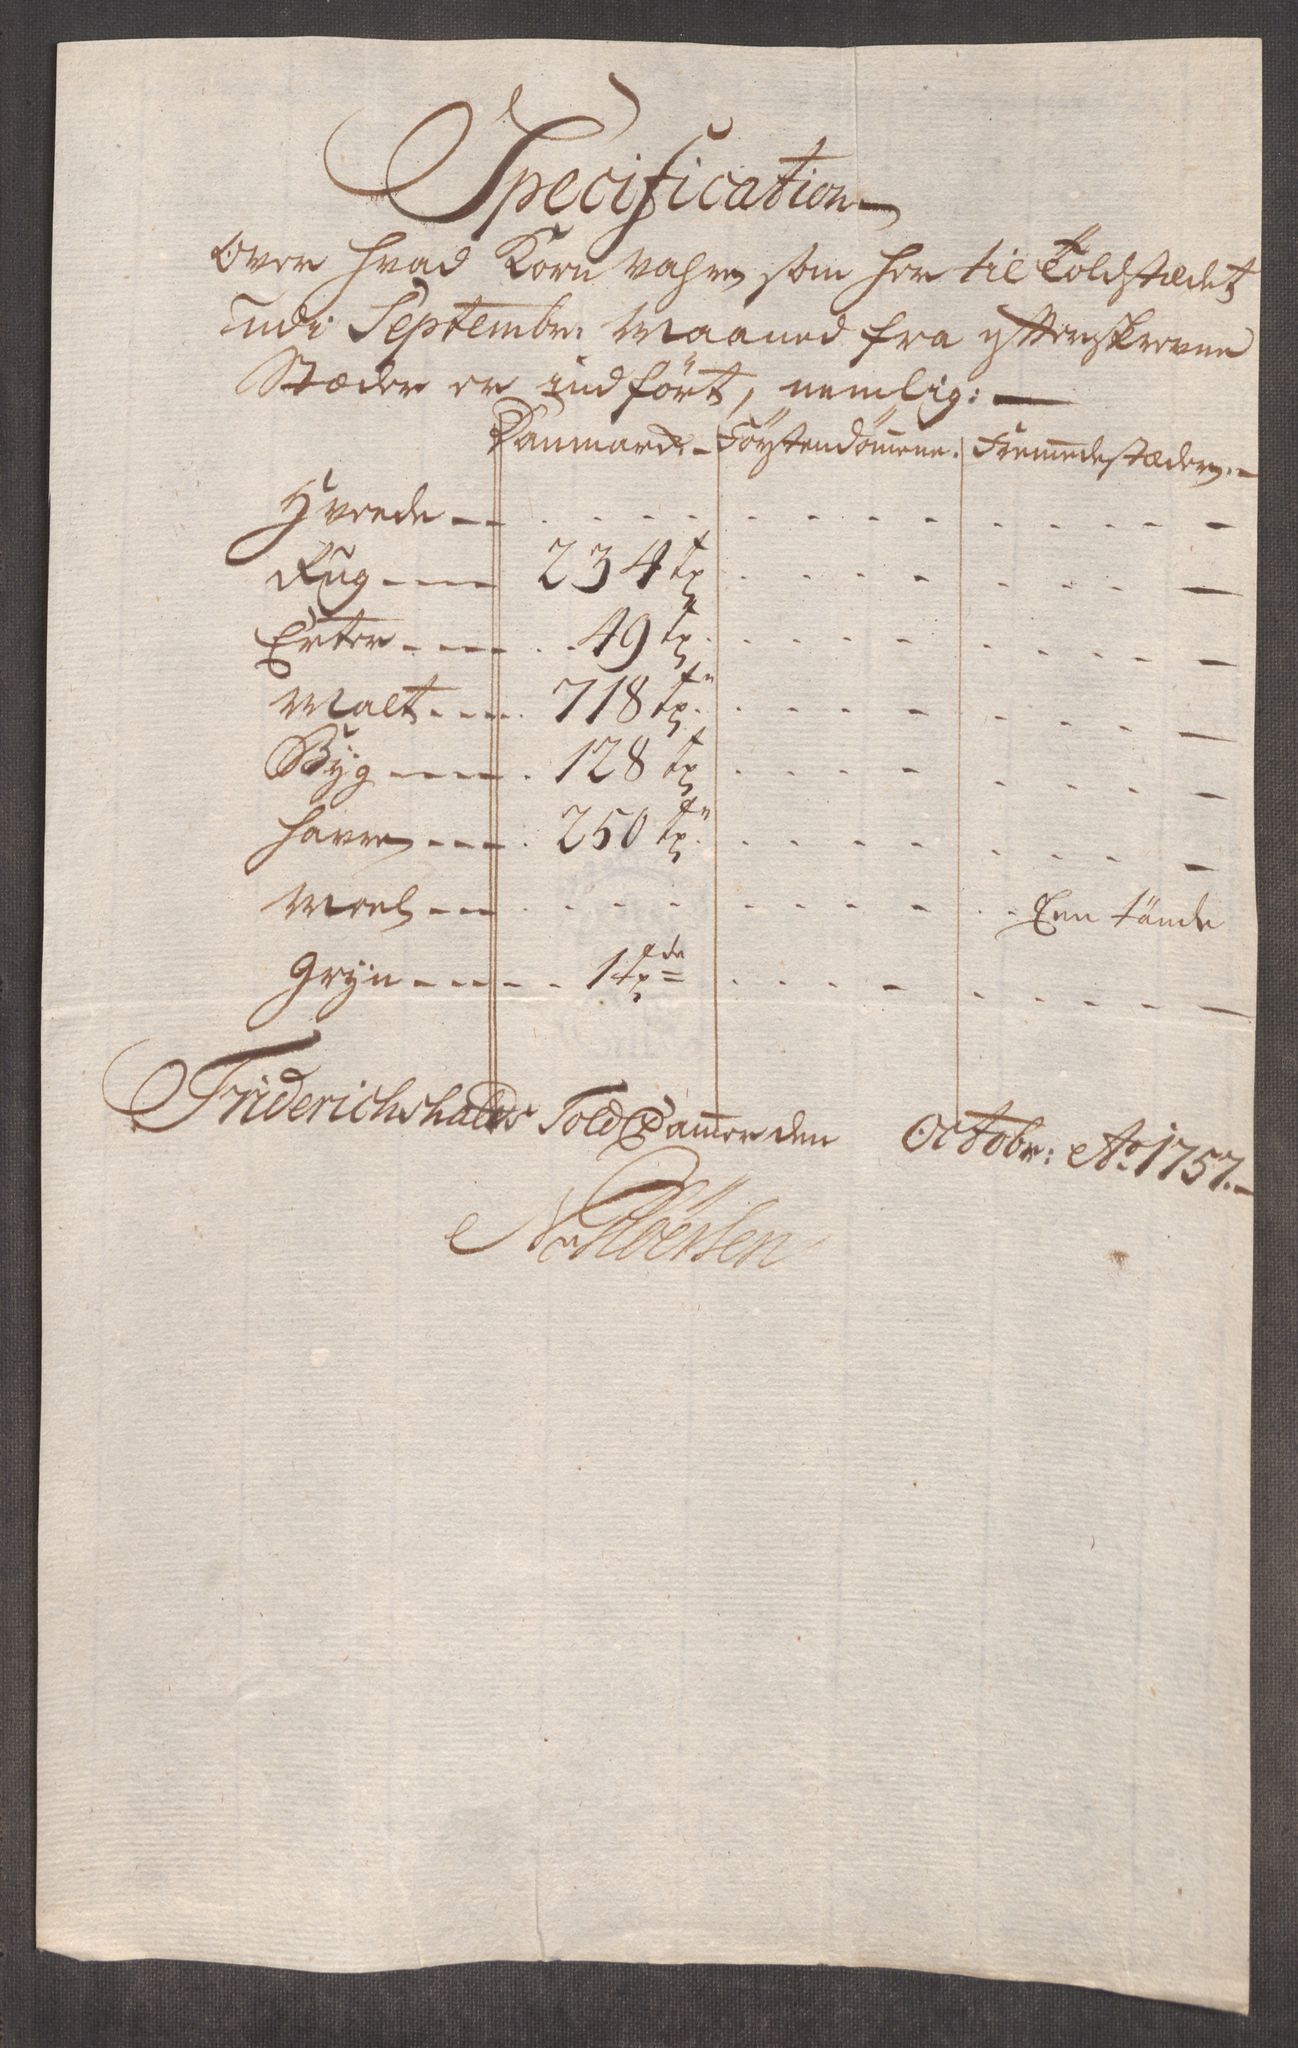 Specification
Over hvad Korn vahre som her til Toldstædet
udi Septembr: Maaned fra ytterskrevne
Stæder er indført, nemlig:
Danmark. Förstendömene. Fremmedestæder.
Hvede
Rug 234 tr
Erter 49 tr
Malt 718 tr
Byg 128 tr
Havre 250 tr
Meel Een tönde
Gryn 1 tr de
Friderichshalds Told Cammer den Octobr: Ao 1757.